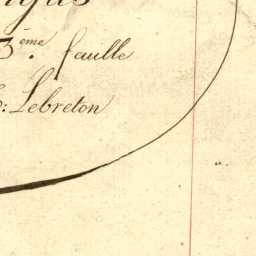 3ème. faulle
: Lebreton